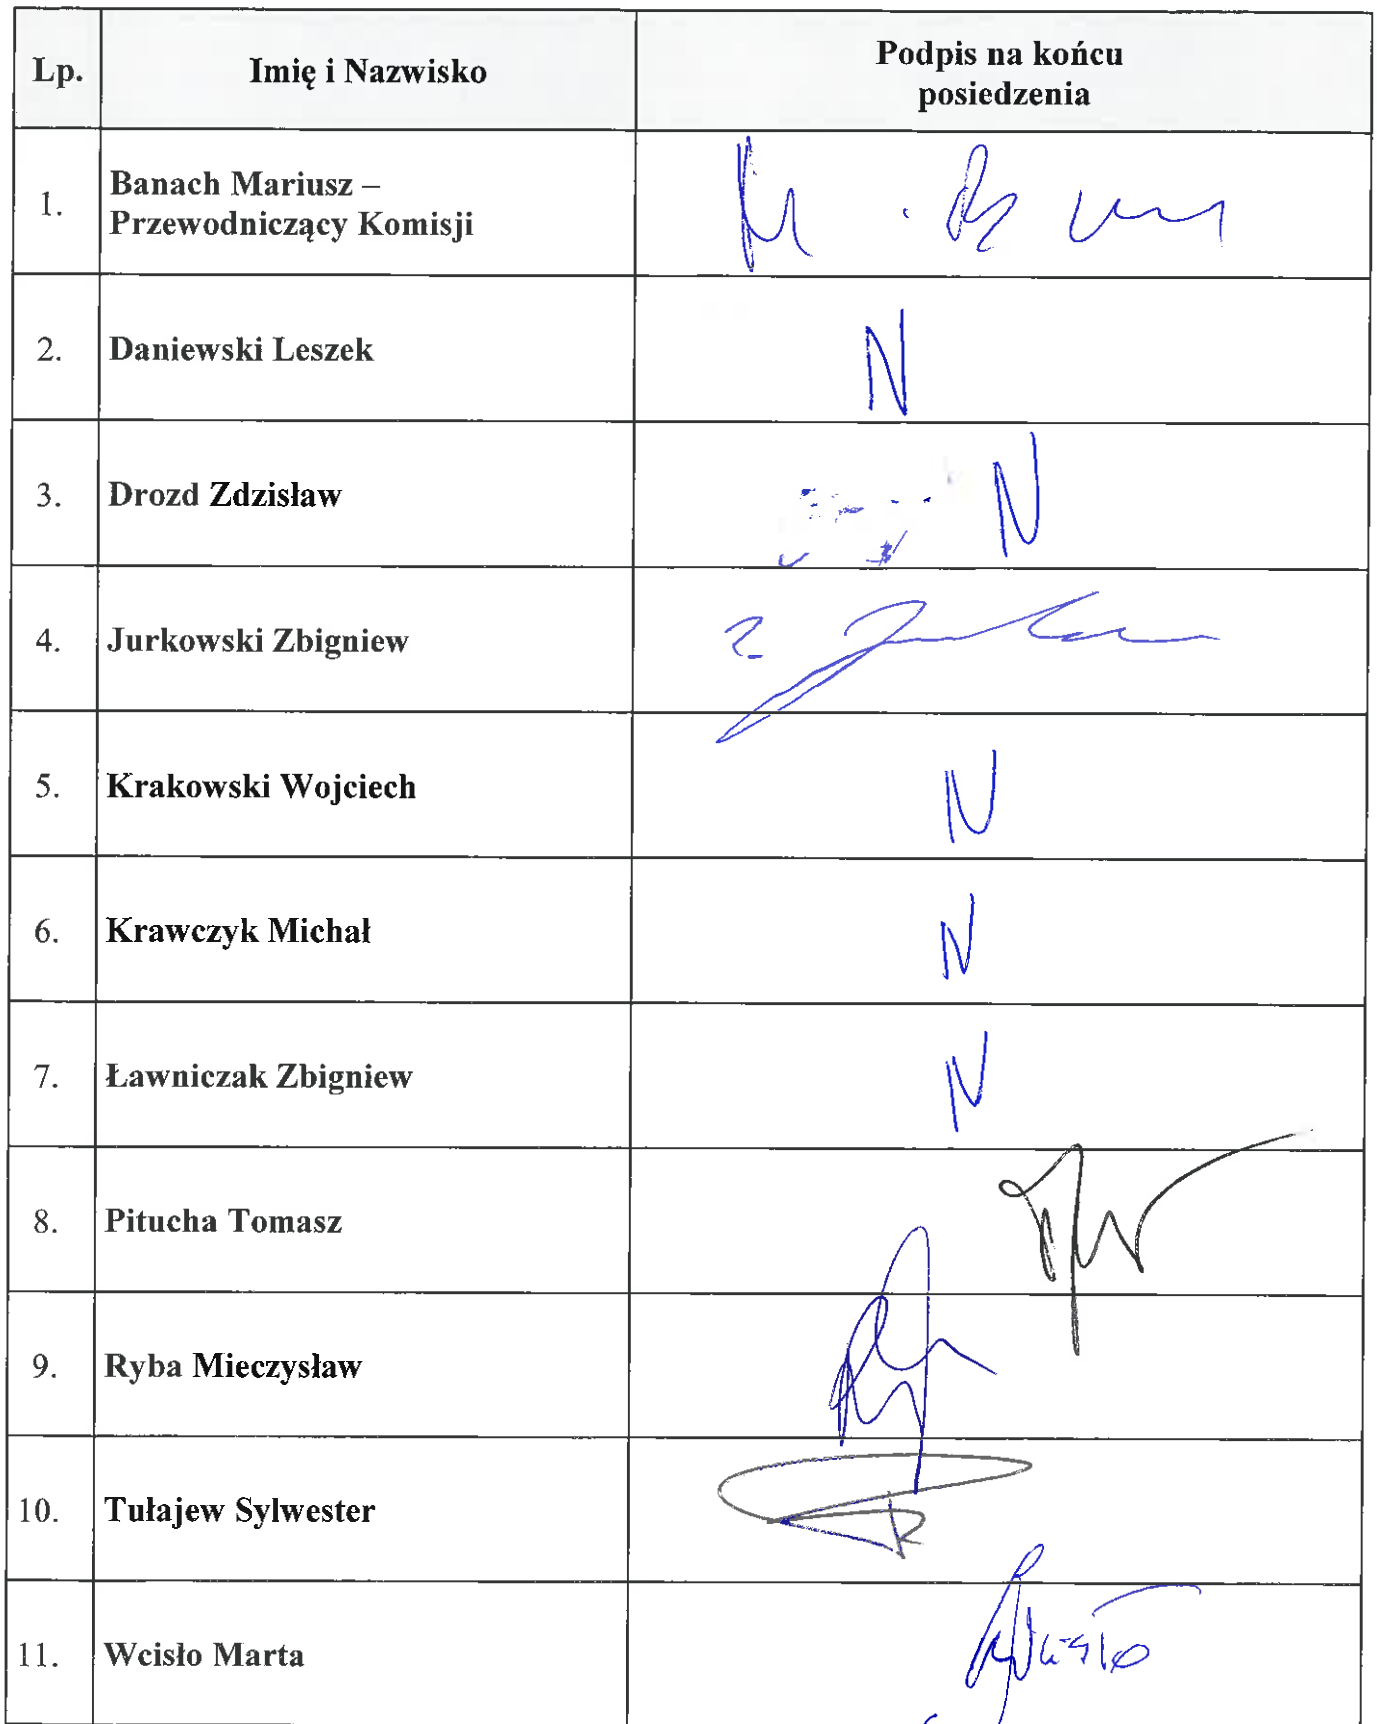 Lp. Imię i Nazwisko Podpis na końcu
posiedzenia
1. Banach Mariusz –
Przewodniczący Komisji
2. Daniewski Leszek N
3. Drozd Zdzisław N
4. Jurkowski Zbigniew
5. Krakowski Wojciech N
6. Krawczyk Michał N
7. Ławniczak Zbigniew N
8. Pitucha Tomasz
9. Ryba Mieczysław
10. Tułajew Sylwester
11. Wcisło Marta